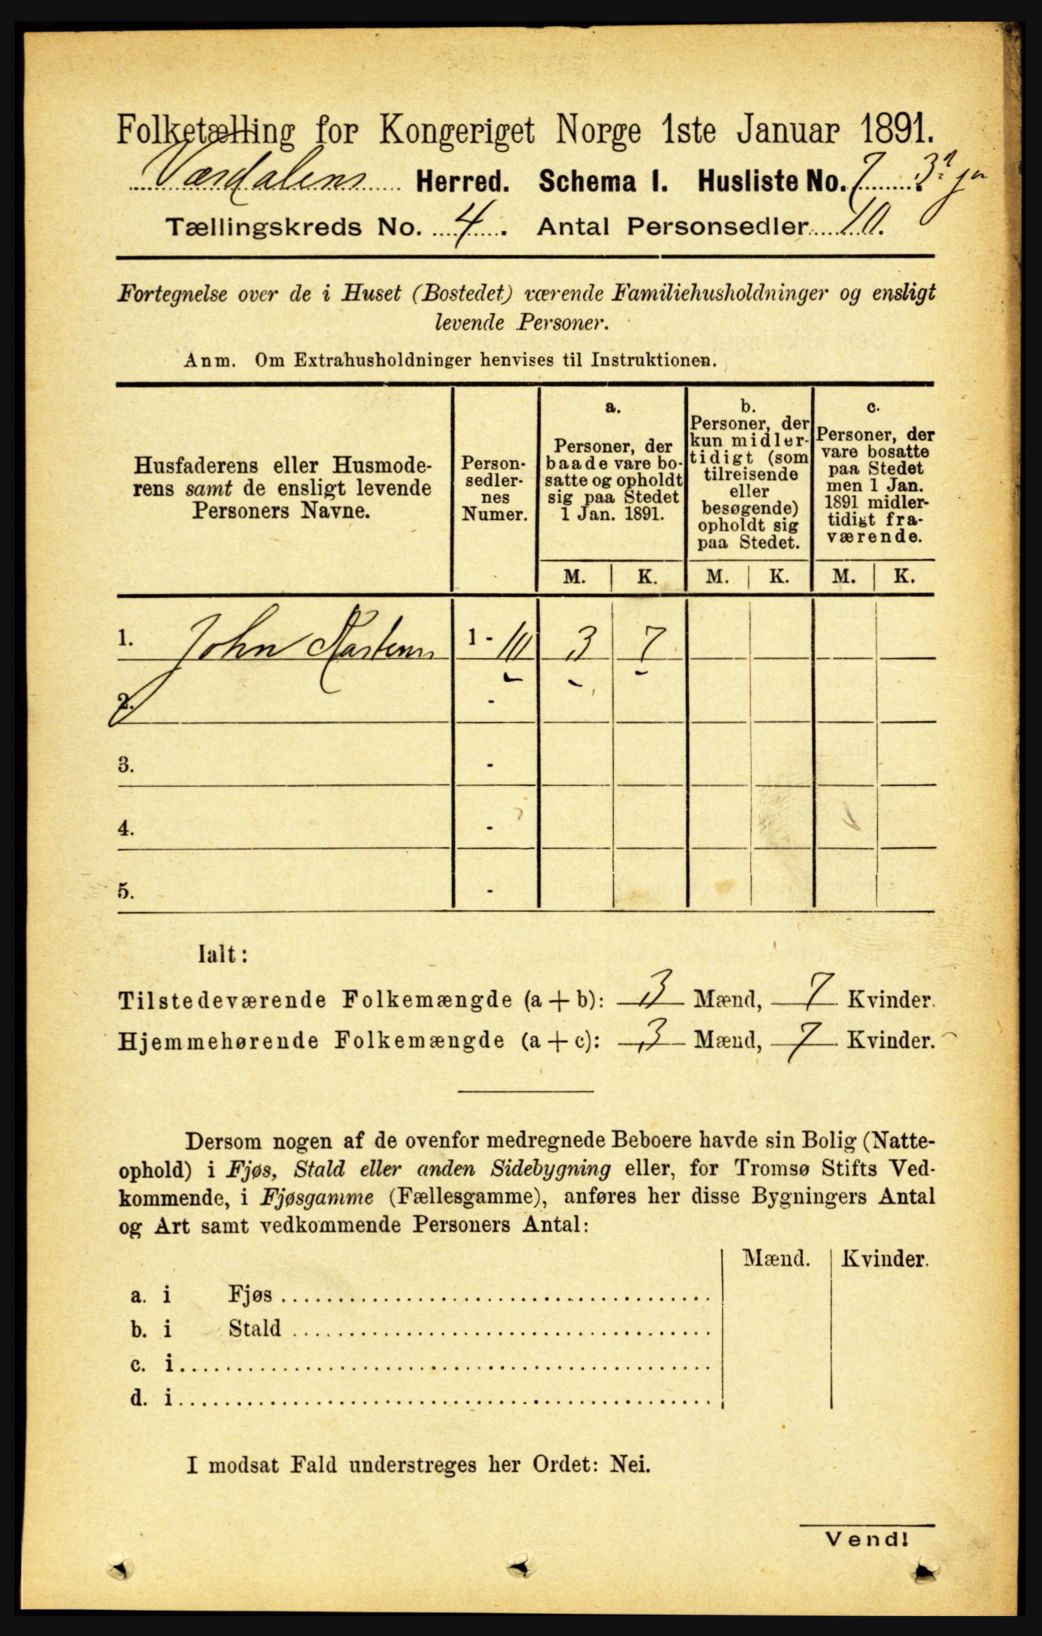 Folketælling for Kongeriget Norge 1ste Januar 1891.
Værdalens Herred. Schema I. Husliste No. 7
Tællingskreds No. 4. Antal Personsedler 10.
Fortegnelse over de i Huset (Bostedet) værende Familiehusholdninger og ensligt
levende Personer.
Anm. Om Extrahusholdninger henvises til Instruktionen.
Husfaderens eller Husmode-
rens samt de ensligt levende
Personers Navne.
Person-
sedler-
nes
Numer.
a.
Personer, der
baade vare bo-
satte og opholdt
sig paa Stedet
1 Jan. 1891.
b.
Personer, der
kun midler-
tidigt (som
tilreisende
eller
besøgende)
opholdt sig
paa Stedet.
c.
Personer, der
vare bosatte
paa Stedet
men 1 Jan.
1891 midler-
tidigt fra-
værende.
M. K. M. K. M. K.
1. John 1 - 10 3 7
2. -
3. -
4. -
5. -
Ialt:
Tilstedeværende Folkemængde (a + b): 3 Mænd, 7 Kvinder.
Hjemmehørende Folkemængde (a + c): 3 Mænd, 7 Kvinder.
Dersom nogen af de ovenfor medregnede Beboere havde sin Bolig (Natte-
ophold) i Fjøs, Stald eller anden Sidebygning eller, for Tromsø Stifts Ved-
kommende, i Fjøsgamme (Fællesgamme), anføres her disse Bygningers Antal
og Art samt vedkommende Personers Antal:
Mænd. Kvinder.
a. i Fjøs
b. i Stald
c. i
d. i
I modsat Fald understreges her Ordet: Nei.
Vend!